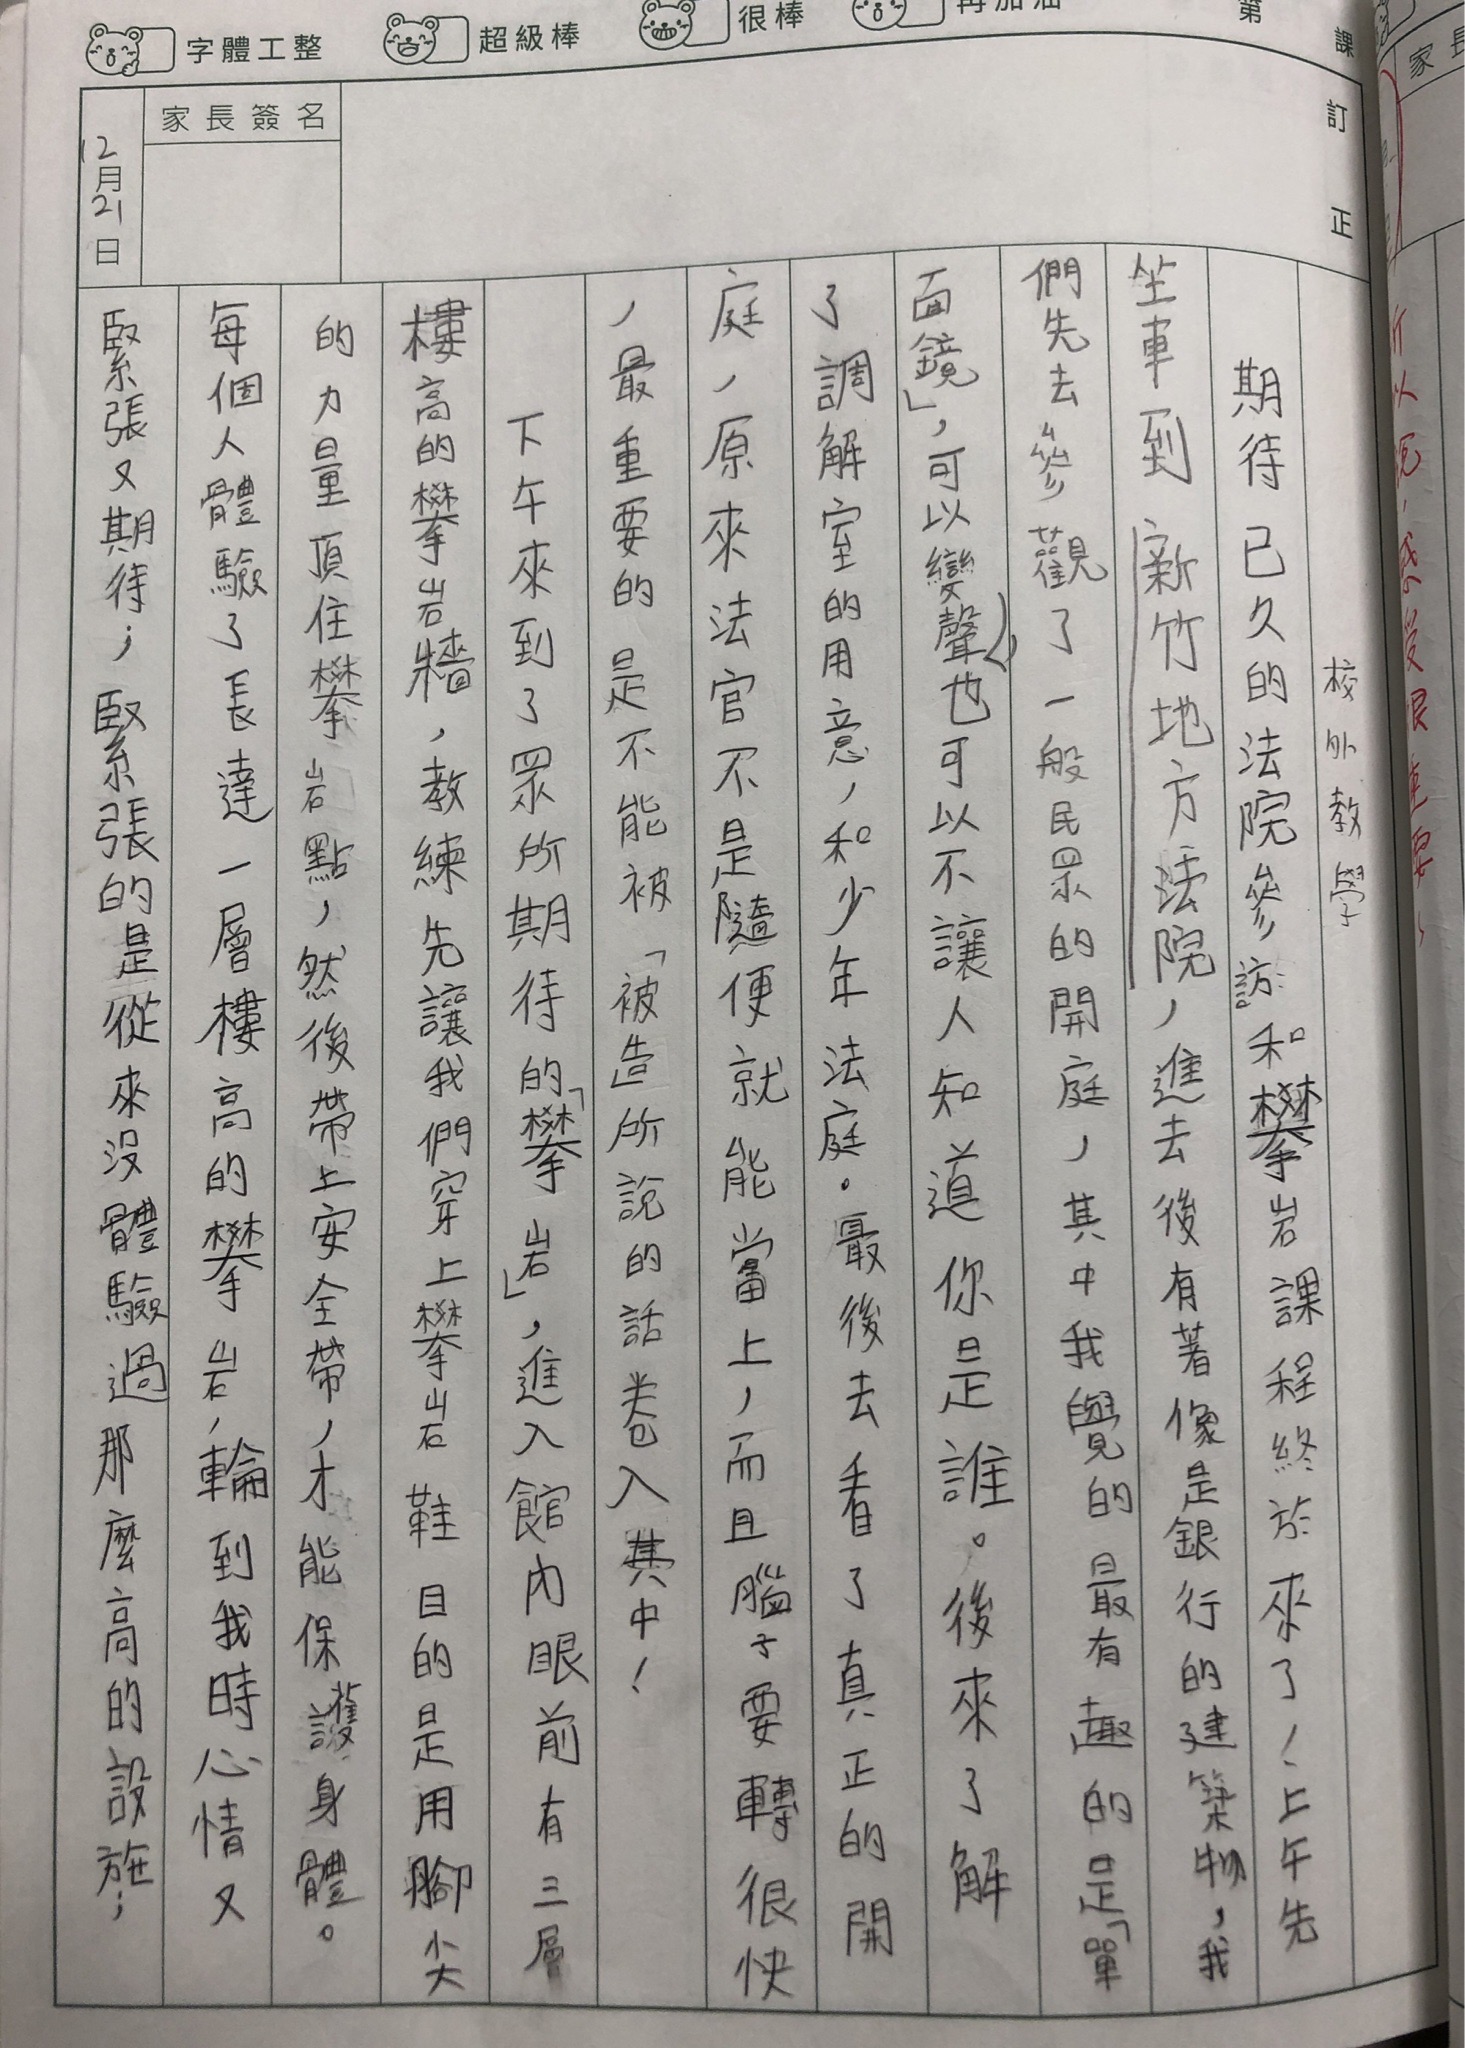 字體工整
超級棒
很棒
再加油
第
課
訂
正
家長簽名
12月21日
校外教學
期待已久的法院參訪和攀岩課程終於來了！上午先
坐車到新竹地方法院，進去後有著像是銀行的建築物，我
們先去參觀了一般民眾的開庭，其中我覺的最有趣的是「單
面鏡」，可以變聲，也可以不讓人知道你是誰。後來了解
了調解室的用意，和少年法庭。最後去看了真正的開
庭，原來法官不是隨便就能當上，而且腦子要轉很快
，最重要的是不能被「被造所說的話卷入其中！
下午來到了眾所期待的「攀岩」，進入館內眼前有三層
樓高的攀岩牆，教練先讓我們穿上攀岩鞋目的是用腳尖
的力量頂住攀岩點，然後帶上安全帶，才能保護身體。
每個人體驗了長達一層樓高的攀岩，輪到我時心情又
緊張又期待；緊張的是從來沒體驗過那麼高的設施；
家長